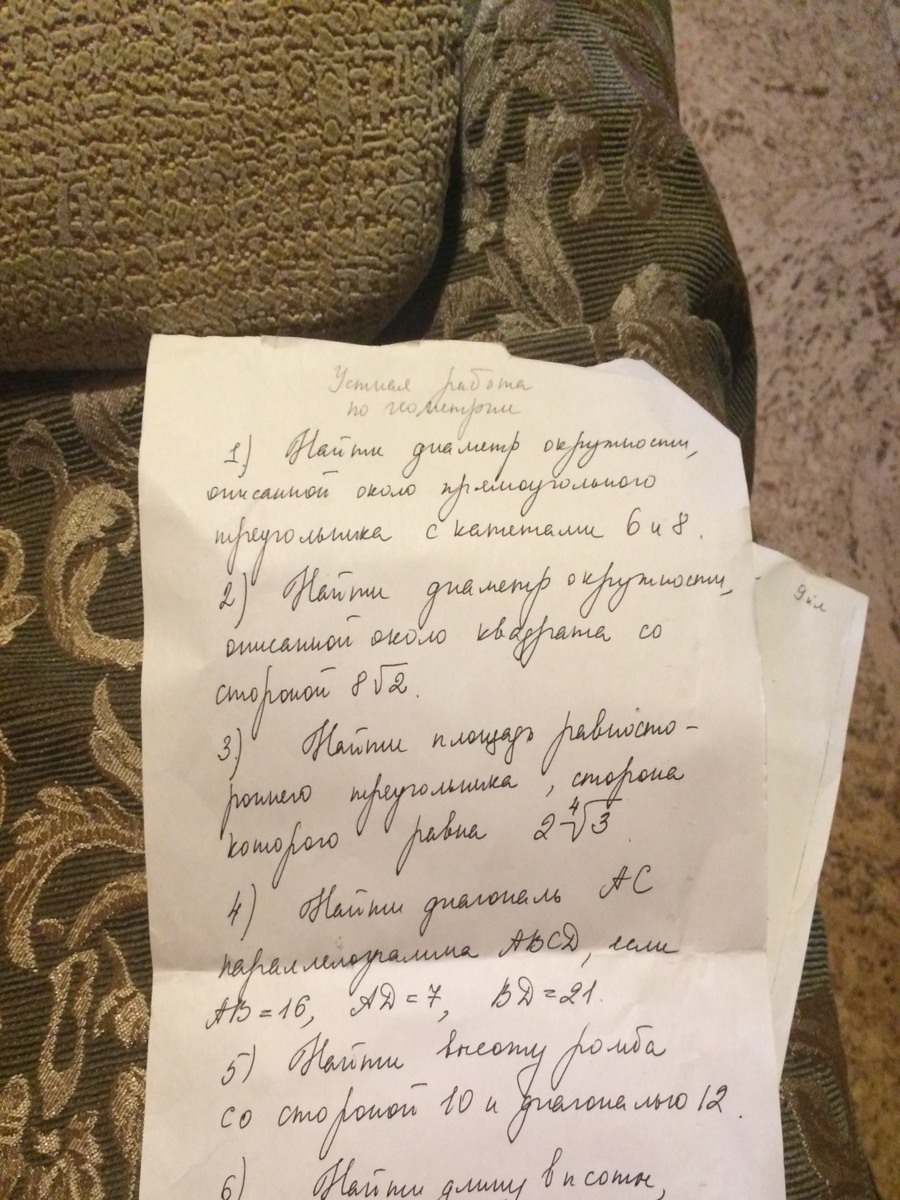 Устная работа
по геометрии
1) Найти диаметр окружности,
описанной около прямоугольного
треугольника с катетами 6 и 8.
2) Найти диаметр окружности,
описанной около квадрата со
стороной 8√2.
3) Найти площадь равносто-
роннего треугольника, сторона
которого равна 2∜3
4) Найти диагональ AC
параллелограмма ABCD, если
AB=16, AD=7, BD=21.
5) Найти высоту ромба
со стороной 10 и диагональю 12.
6) Найти длину высоты,
9 кл